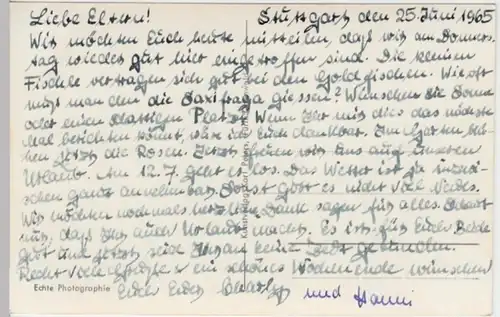 Liebe Eltern! Stuttgart, den 25. Juni 1965
Wir möchten Euch heute mitteilen, dass wir am Donners-
tag wieder gut hier eingetroffen sind. Die kleinen
Fischle vertragen sich gut bei den Goldfischen. Wie oft
muss man denn die Saxifraga giessen? Wünschen sie Sonne
oder einen schattigen Platz? Wenn Ihr mir dies das nächste
Mal berichten könnt, wäre ich Euch dankbar. Im Garten blü-
hen jetzt die Rosen. Jetzt freuen wir uns auf unseren
Urlaub. Am 12.7. geht es los. Das Wetter ist ja inzwi-
schen ganz annehmbar. Sonst gibt es nicht viel Neues.
Wir möchten nochmals herzlichen Dank sagen für alles. Schart
nur, dass Ihr auch Urlaub macht. Es ist für Euch Beide
gut und jetzt seid Ihr an keine Zeit gebunden.
Recht viele Grüsse + ein schönes Wochenende wünschen
Euch Eure und Hanni
Echte Photographie